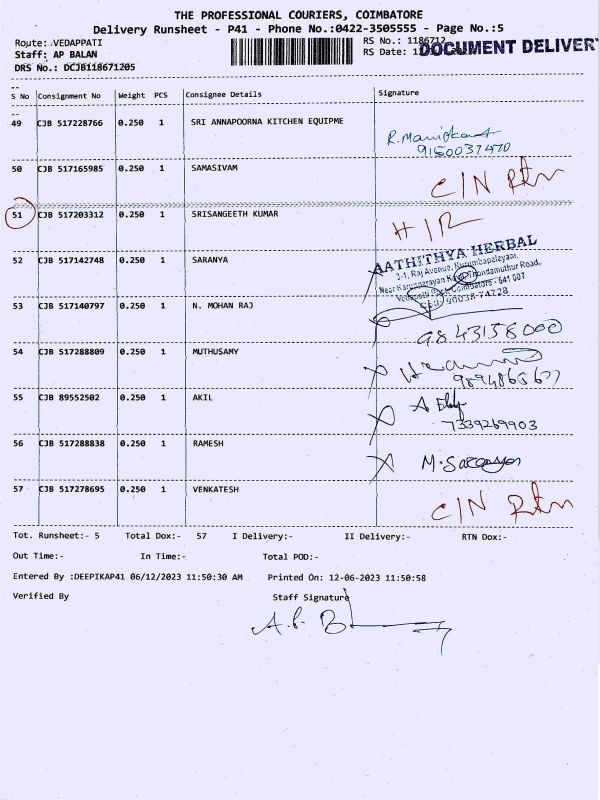 THE PROFESSIONAL COURIERS, COIMBATORE
Delivery Runsheet - P41 - Phone No.:0422-3505555 - Page No.:5
Route: VEDAPPATI
RS No.: 1186712
DOCUMENT DELIVER
Staff: AP BALAN
RS Date:
DRS No.: DCJB118671205
S No Consignment No Weight PCS Consignee Details Signature
49 CJB 517228766 0.250 1 SRI ANNAPOORNA KITCHEN EQUIPME
9150037470
50 CJB 517165985 0.250 1 SAMASIVAM C/N Rtn
51 CJB 517203312 0.250 1 SRISANGEETH KUMAR
52 CJB 517142748 0.250 1 SARANYA
AATHITHYA HERBAL
3-1, Raj Avenue, Kurumbapalayam,
Thondamuthur Road,
Coimbatore - 641 007
53 CJB 517140797 0.250 1 N. MOHAN RAJ
9843158000
54 CJB 517288809 0.250 1 MUTHUSAMY
55 CJB 89552502 0.250 1 AKIL
7339269903
56 CJB 517288838 0.250 1 RAMESH
57 CJB 517278695 0.250 1 VENKATESH C/N Rtn
Tot. Runsheet:- 5 Total Dox:- 57 I Delivery:- II Delivery:- RTN Dox:-
Out Time:- In Time:- Total POD:-
Entered By :DEEPIKAP41 06/12/2023 11:50:30 AM Printed On: 12-06-2023 11:50:58
Verified By Staff Signature